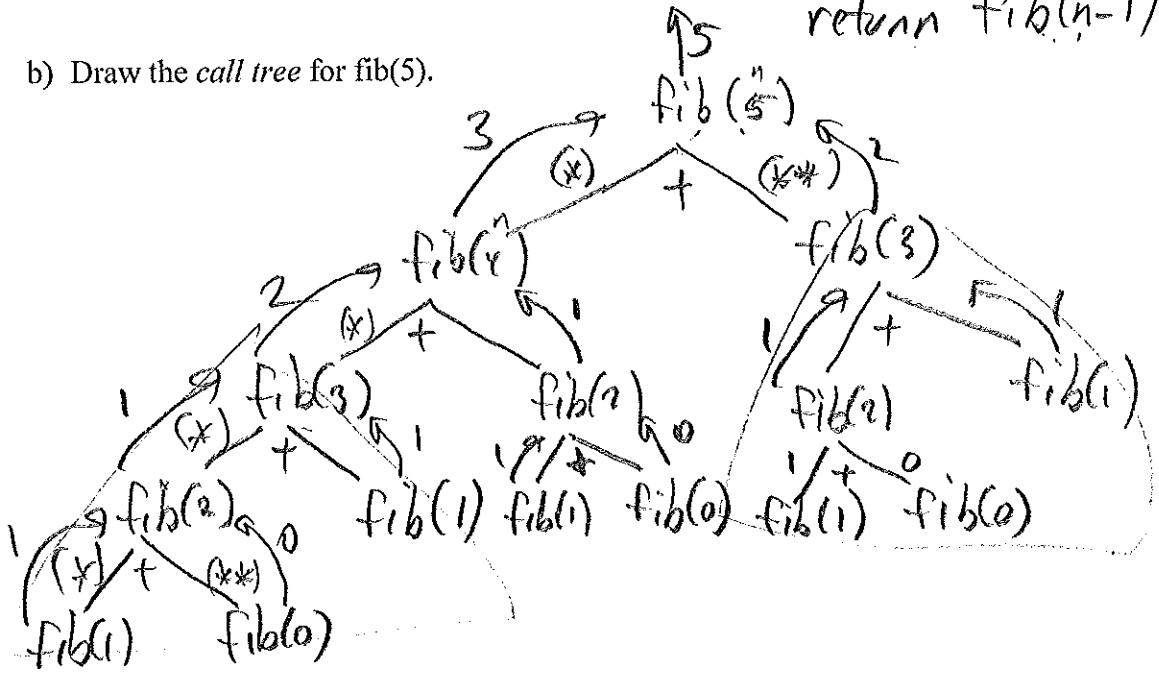 return fib(n-1)
5
b) Draw the call tree for fib(5).
n
fib(5)
3 (*) + (**) 2
n
fib(4) fib(3)
2 (*) + 1 1 + 1
fib(3) fib(2) fib(2) fib(1)
1 (*) + 1 1 + 0 1 + 0
fib(2) fib(1) fib(1) fib(0) fib(1) fib(0)
1 (*) + (**) 0
fib(1) fib(0)